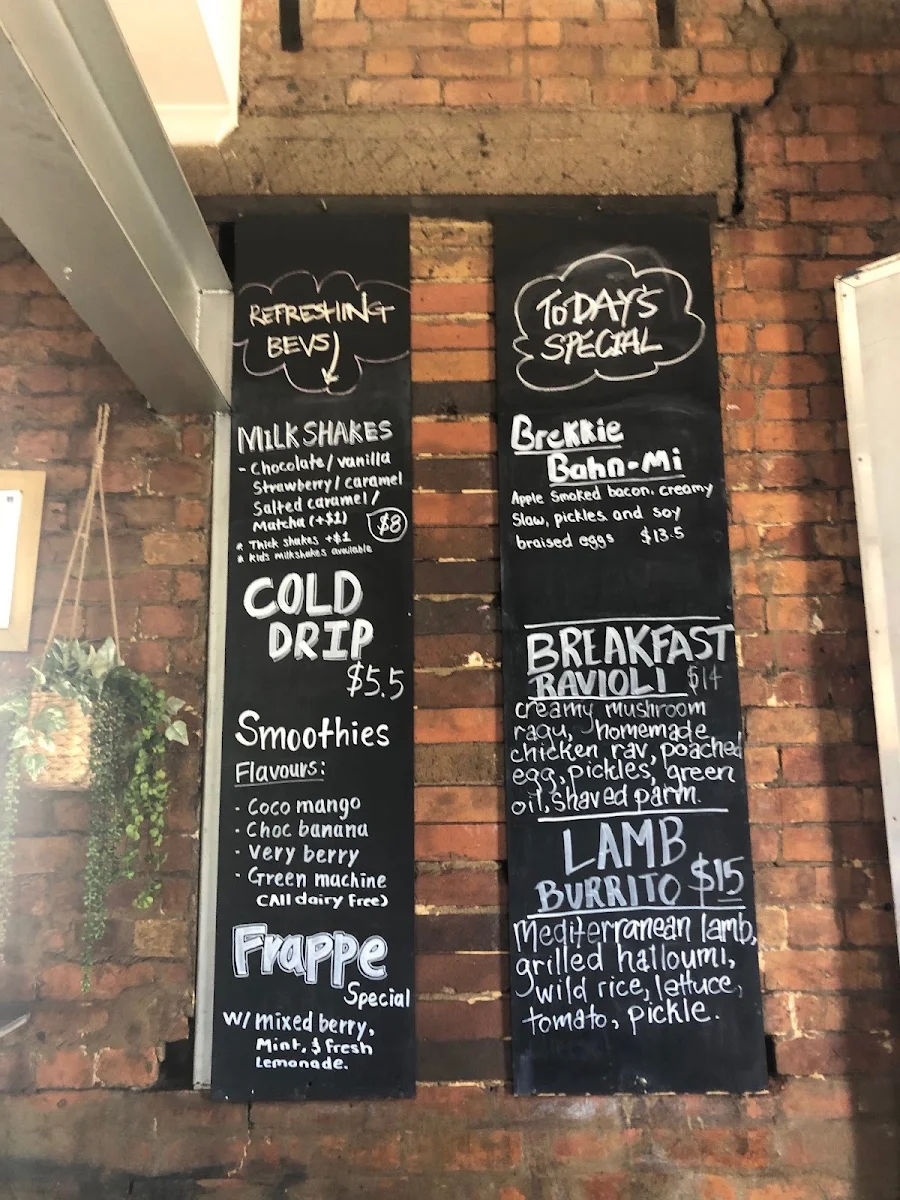 REFRESHING
BEVS
MILKSHAKES
- Chocolate / vanilla
Strawberry / caramel
Salted caramel /
Matcha (+$1)
$8
* Thick shakes +$1
* kids milkshakes available
COLD
DRIP
$5.5
Smoothies
Flavours:
- Coco mango
- Choc banana
- Very berry
- Green machine
(All dairy free)
Frappe
Special
w/ mixed berry,
Mint, & fresh
Lemonade.
TODAY'S
SPECIAL
Brekkie
Bahn-Mi
Apple Smoked bacon, creamy
Slaw, pickles and soy
braised eggs $13.5
BREAKFAST
RAVIOLI $14
creamy mushroom
ragu, homemade
chicken rav, poached
egg, pickles, green
oil, shaved parm.
LAMB
BURRITO $15
Mediterranean lamb,
grilled halloumi,
wild rice, lettuce,
tomato, pickle.